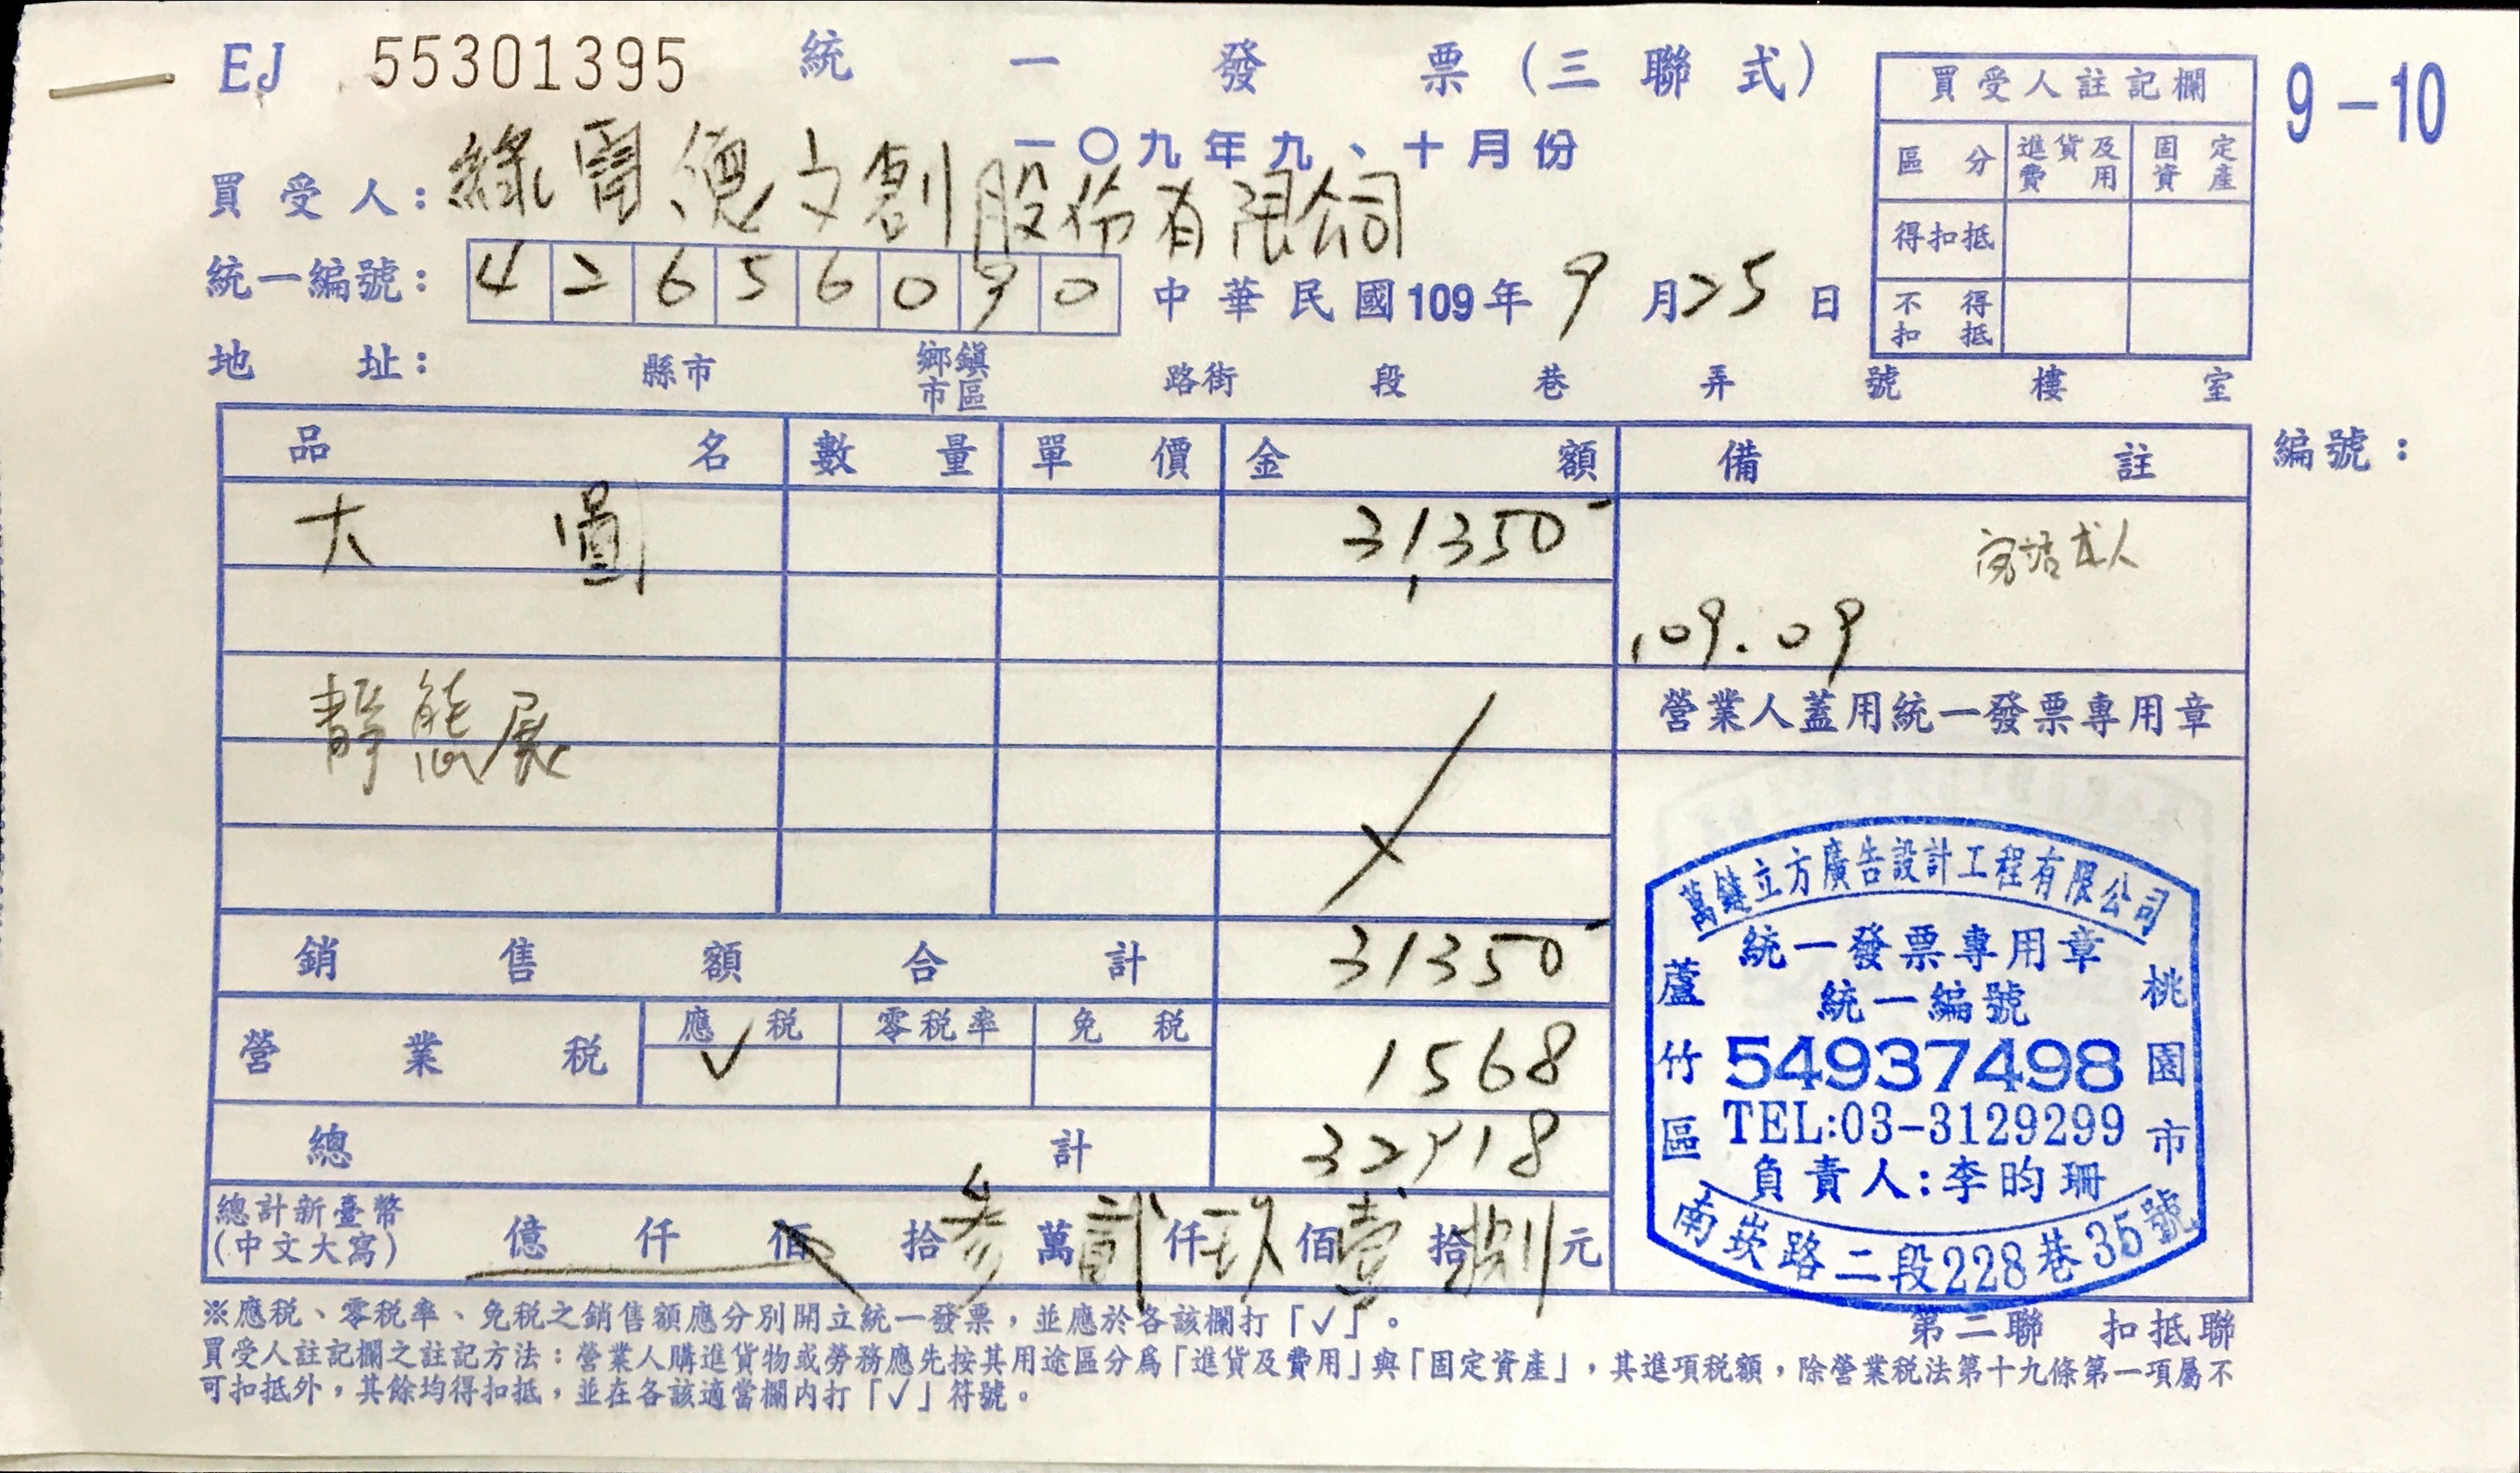 EJ 55301395 統一發票(三聯式)
9-10
一〇九年九、十月份
買受人: 綠電德文創股份有限公司
統一編號: 42656090 中華民國109年9月25日
地址: 縣市 鄉鎮市區 路街 段 巷 弄 號 樓 室
買受人註記欄
區分 進貨及費用 固定資產
得扣抵
不得扣抵
品名 數量 單價 金額 備註 編號:
大圖 31,350-
109.09
靜態展
營業人蓋用統一發票專用章
銷售額合計 31350-
營業稅 應稅 ✓ 零稅率 免稅 1568
總計 32918
總計新臺幣(中文大寫) 億 仟 佰 拾 參 萬 貳 仟 玖 佰 壹 拾 捌 元
萬鏈立方廣告設計工程有限公司
統一發票專用章
統一編號
54937498
TEL:03-3129299
負責人:李昀珊
桃園市
蘆竹區
南崁路二段228巷35號
第二聯 扣抵聯
※應稅、零稅率、免稅之銷售額應分別開立統一發票,並應於各該欄打「✓」。
買受人註記欄之註記方法:營業人購進貨物或勞務應先按其用途區分為「進貨及費用」與「固定資產」,其進項稅額,除營業稅法第十九條第一項屬不
可扣抵外,其餘均得扣抵,並在各該適當欄內打「✓」符號。